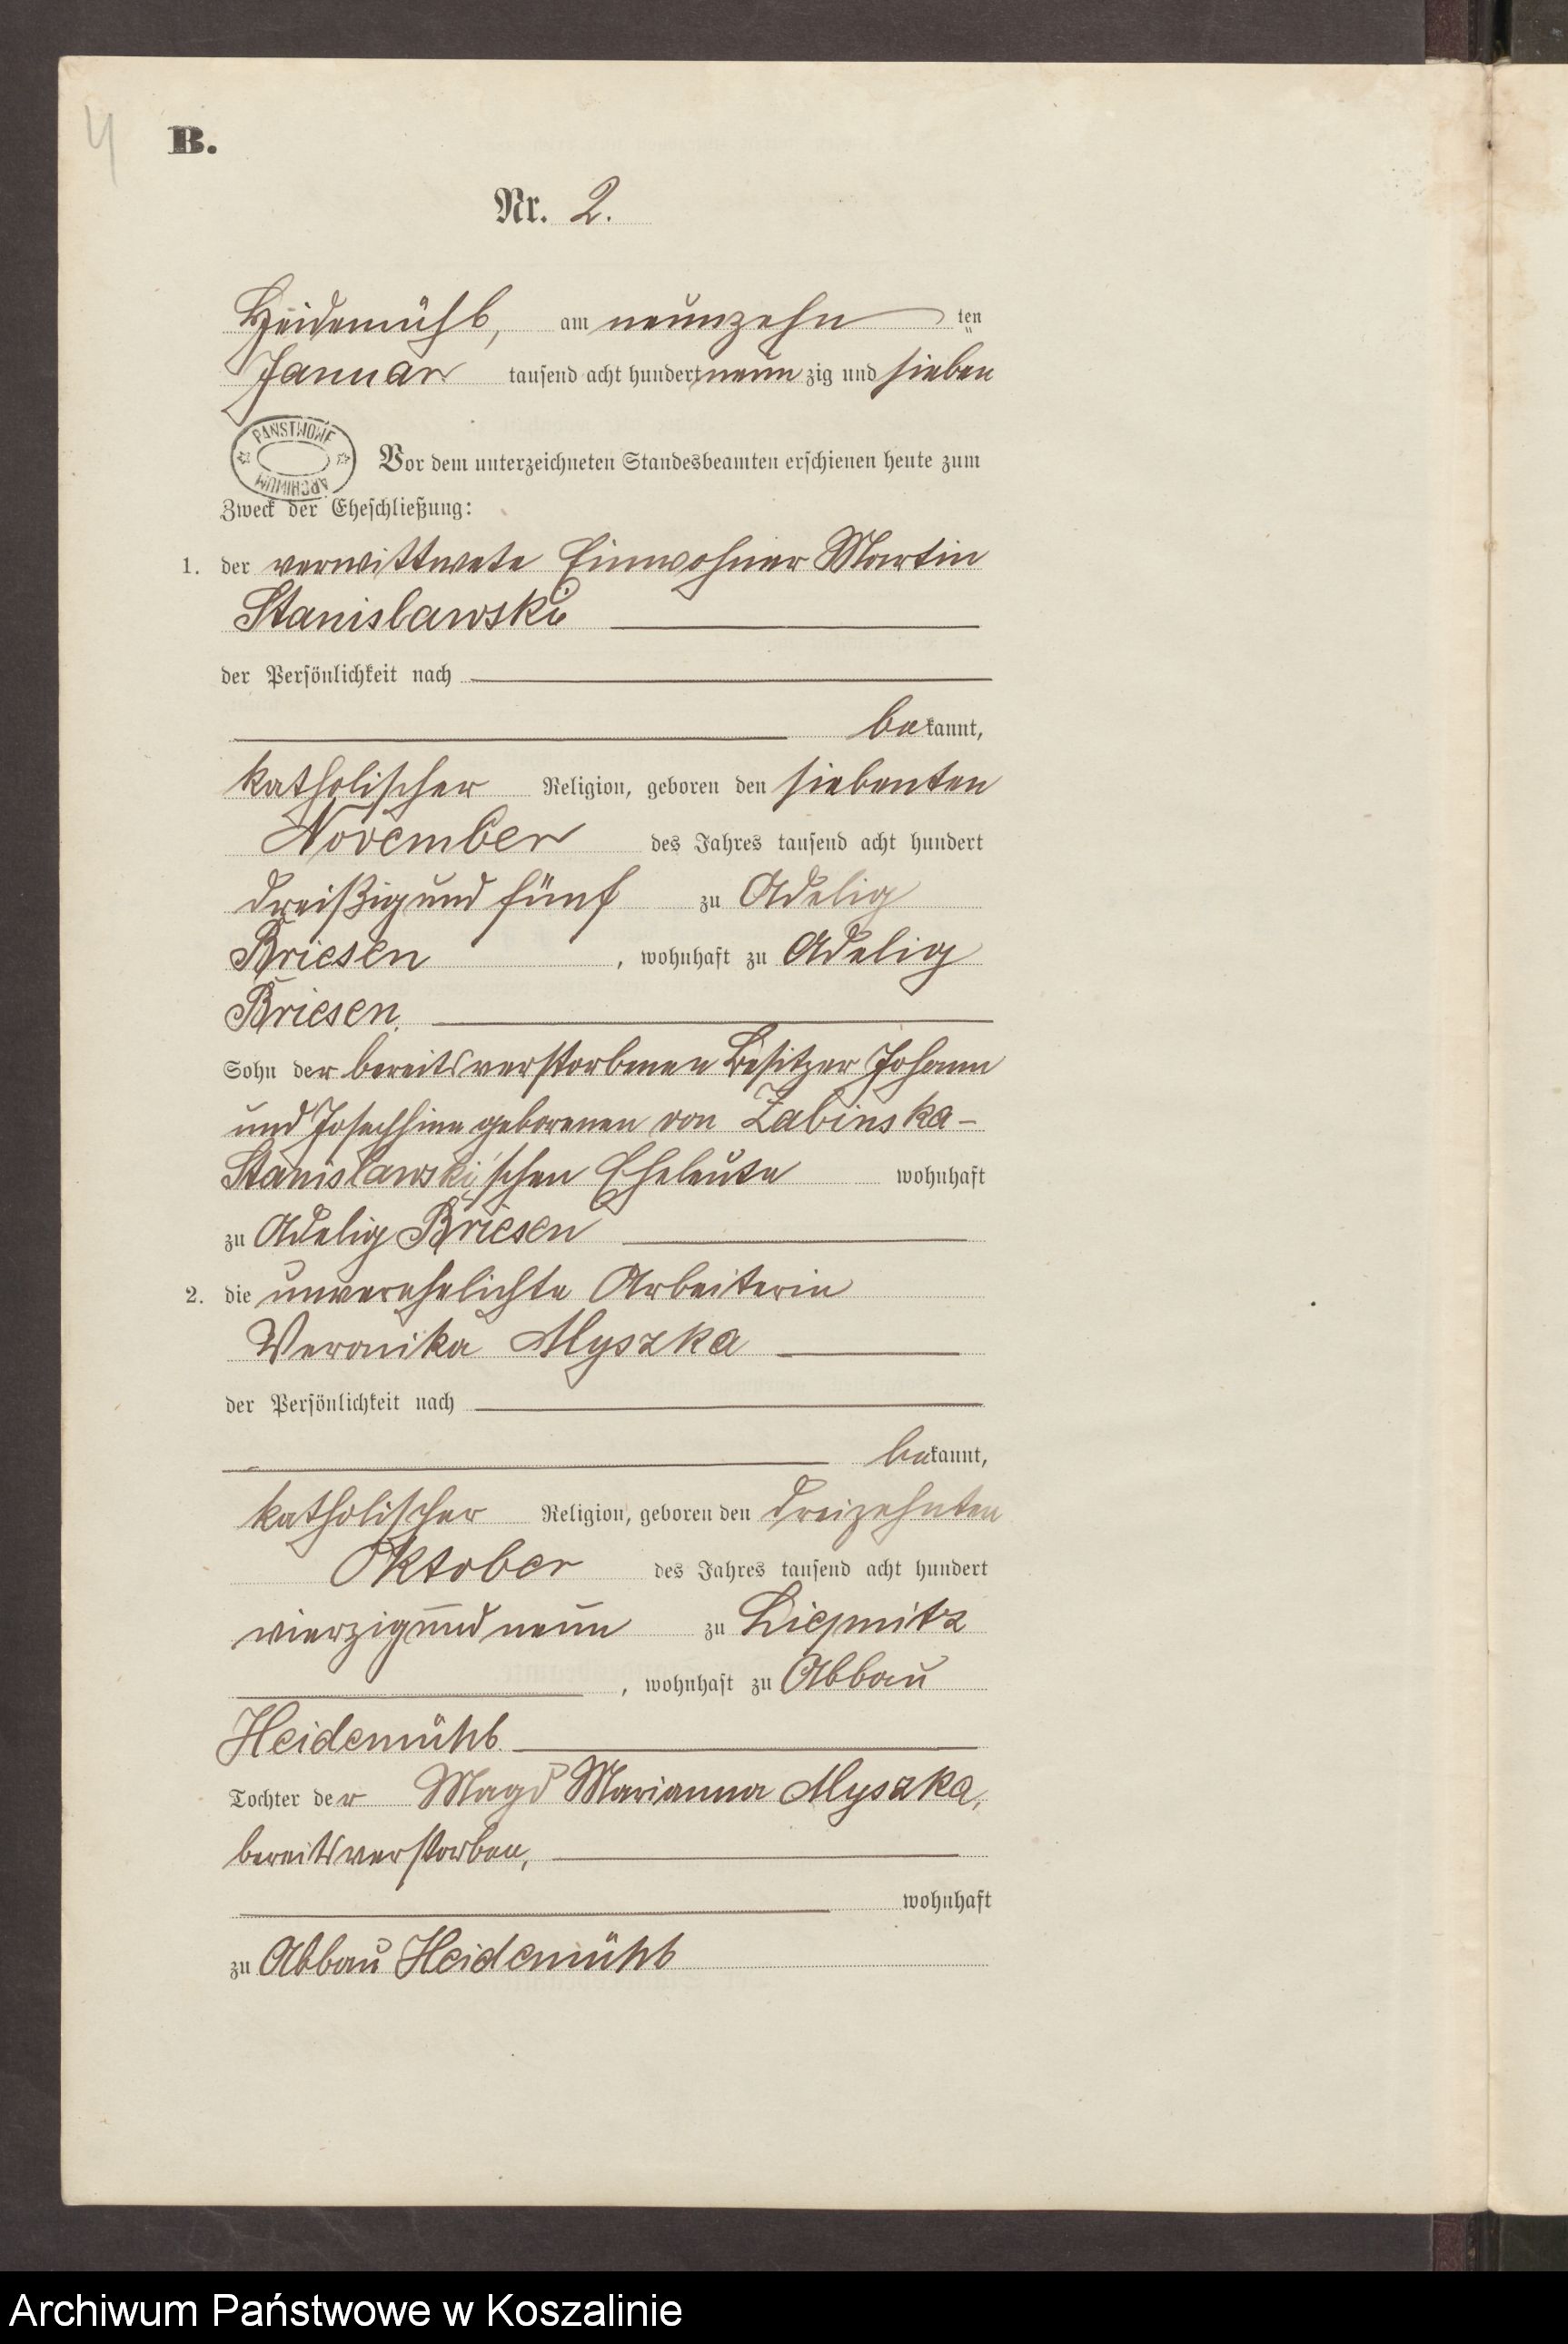 4
B.
Nr. 2.
Heidemühl, am neunzehn ten
Januar tausend acht hundert neun zig und sieben
PAŃSTWOWE ARCHIWUM
Vor dem unterzeichneten Standesbeamten erschienen heute zum
Zweck der Eheschließung:
1. der verwittwete Einwohner Martin
Stanislawski
der Persönlichkeit nach
bekannt,
katholischer Religion, geboren den siebenten
November des Jahres tausend acht hundert
dreißig und fünf zu Adelig
Briesen, wohnhaft zu Adelig
Briesen
Sohn der bereits verstorbenen Besitzer Johann
und Josephine geborenen von Zabinska-
Stanislawski'schen Eheleute wohnhaft
zu Adelig Briesen
2. die unverehelichte Arbeiterin
Veronika Myszka
der Persönlichkeit nach
bekannt,
katholischer Religion, geboren den dreizehnten
Oktober des Jahres tausend acht hundert
vierzig und neun zu Liepnitz
, wohnhaft zu Abbau
Heidemühl
Tochter der Magd Marianna Myszka,
bereits verstorben,
wohnhaft
zu Abbau Heidemühl
Archiwum Państwowe w Koszalinie